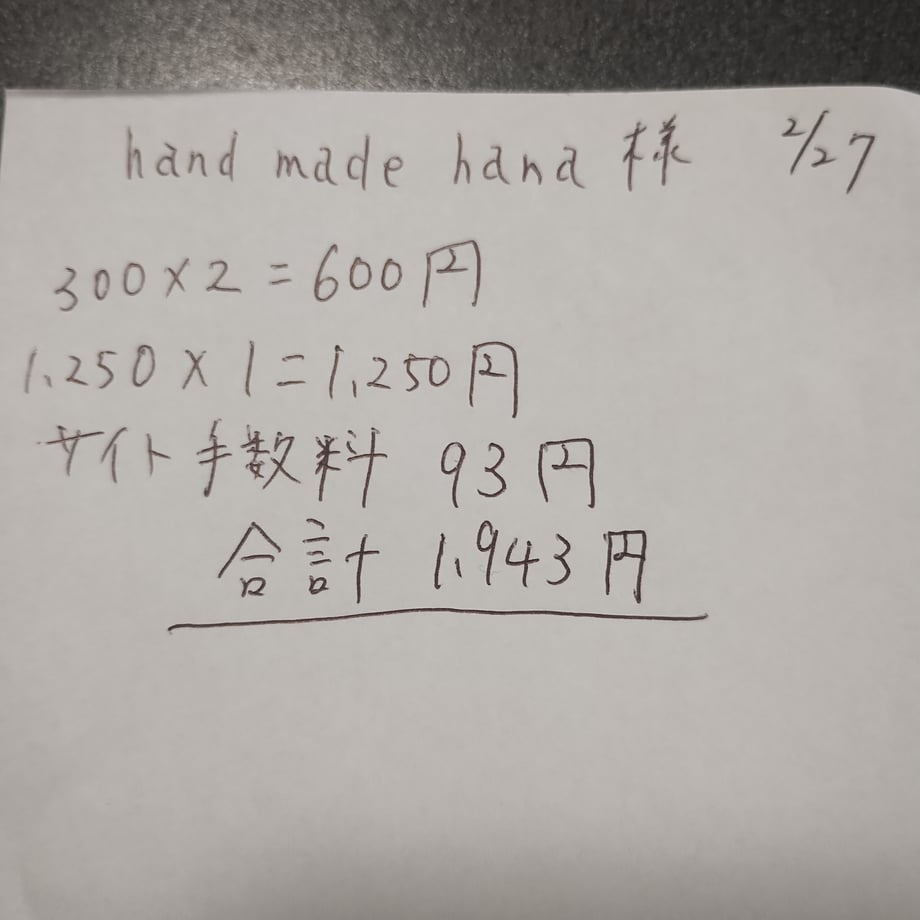 hand made hana 様 2/27
300×2=600円
1,250×1=1,250円
サイト手数料 93円
合計 1,943円